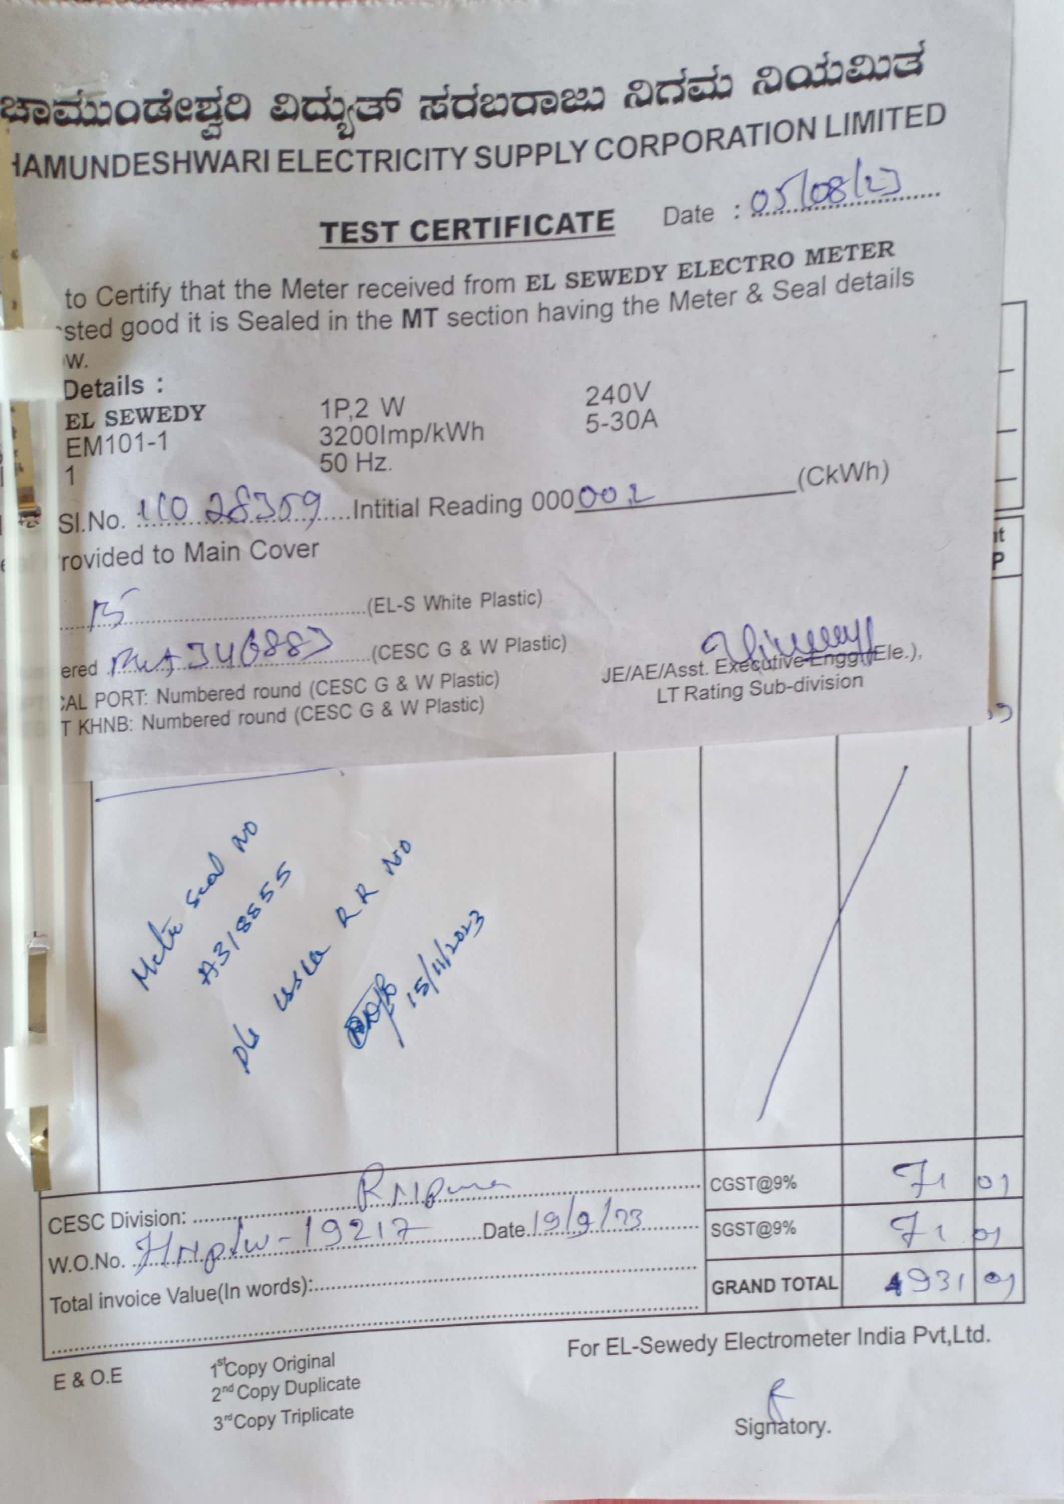 ಚಾಮುಂಡೇಶ್ವರಿ ವಿದ್ಯುತ್ ಸರಬರಾಜು ನಿಗಮ ನಿಯಮಿತ
HAMUNDESHWARI ELECTRICITY SUPPLY CORPORATION LIMITED
TEST CERTIFICATE Date : 05/08/23
to Certify that the Meter received from EL SEWEDY ELECTRO METER
sted good it is Sealed in the MT section having the Meter & Seal details
w.
Details :
EL SEWEDY 1P,2 W 240V
EM101-1 3200Imp/kWh 5-30A
1 50 Hz.
Sl.No. Intitial Reading 000 (CkWh)
rovided to Main Cover
(EL-S White Plastic)
ered (CESC G & W Plastic)
CAL PORT: Numbered round (CESC G & W Plastic)
T KHNB: Numbered round (CESC G & W Plastic)
JE/AE/Asst. Executive Engg.(Ele.),
LT Rating Sub-division
nt
P
Meter Seal no
A318855
RR No
15/11/2023
CESC Division:
W.O.No. - 19217 Date 19/9/23
Total invoice Value(In words):
CGST@9% 71 01
SGST@9% 71 01
GRAND TOTAL 931 01
E & O.E
1st Copy Original
2nd Copy Duplicate
3rd Copy Triplicate
For EL-Sewedy Electrometer India Pvt,Ltd.
Signatory.